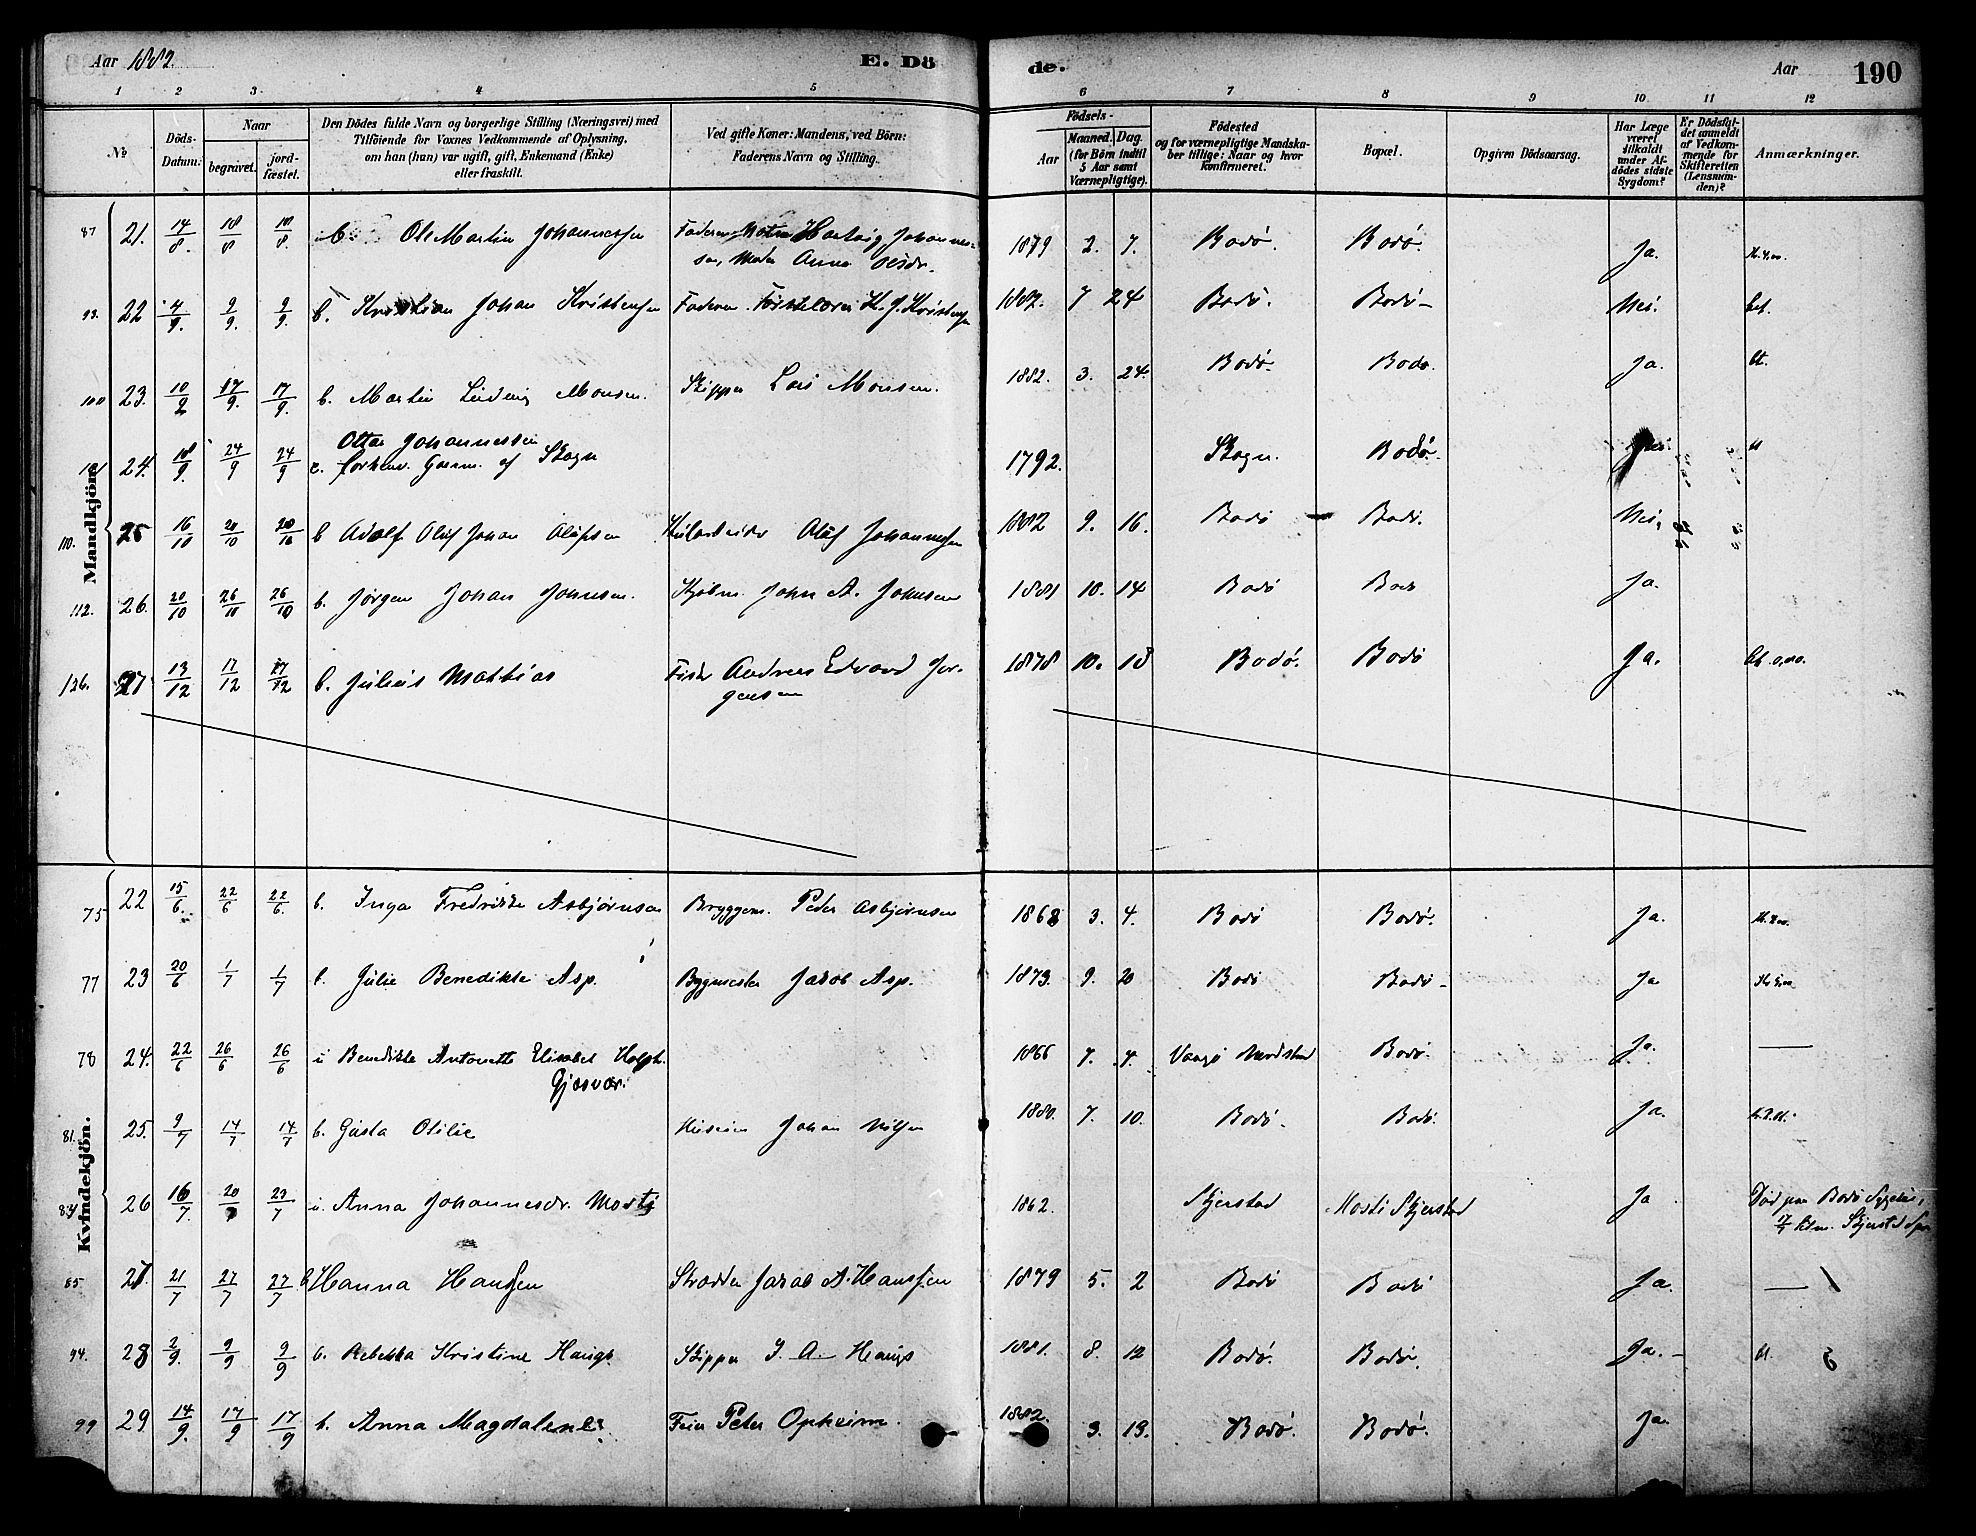 Aar 1882.
E. Döde.
Aar
190
1 2 3 4 5 6 7 8 9 10 11 12
No
Döds-Datum:
Naar
begravet.
jordfæstet.
Den Dödes fulde Navn og borgerlige Stilling (Næringsvei) med
Tilföiende for Voxnes Vedkommende af Oplysning,
om han (hun) var ugift, gift, Enkemand (Enke)
eller fraskilt.
Ved gifte Koner: Mandens, ved Börn:
Faderens Navn og Stilling.
Födsels-
Aar
Maaned. Dag.
(for Börn indtil
5 Aar samt
Værnepligtige).
Födested
og for værnepligtige Mandskaber tillige: Naar og hvor
konfirmeret.
Bopæl.
Opgiven Dödsaarsag.
Har Læge
været
tilkaldt
under Afdödes sidste
Sygdom?
Er Dödsfaldet anmeldt
af Vedkommende for
Skifteretten
(Lensmanden)?
Anmærkninger.
Mandkjön.
87 21. 14/8. 18/8 18/8. b. Ole Martin Johannessen Faderen Hartvig Johannessen, Moder Anna 1879 2. 7. Bodø. Bodø. Ja.
93. 22 4/9. 9/9. 9/9. b. Kristian Johan Kristensen Faderen K. J. Kristensen 1882. 7 24 Bodø. Bodø- Nei. bet.
100 23. 10/9 17/9. 17/9. b. Martin Ludvig Monsen. Skipper Lars Monsen. 1882. 3. 24. Bodø. Bodø. Ja. bt.
24. 18/9. 24/9 24/9 e. Ottar Johannessen
forhenv. Gaarm. af Skogn 1792. Skogn. Bodø. bt
110. 25 16/10 20/10 20/10 b Adolf Oluf Johan Olufsen Oluf Johannessen 1882 9. 16. Bodø Bodø. Nei.
112. 26. 20/10 26/10 26/10 b. Jørgen Johan Johnsen. Kjøbm. John A. Johnsen 1881 10. 14 Bodø Bodø Ja.
126. 27 13/12 17/12 17/12 b. Julius Mathias Fisker Andreas Edvard Jørgensen 1878 10. 18 Bodø. Bodø Ja.
Kvindekjön.
75 22 15/6. 22/6 22/6. b. Inga Fredrikke Asbjørnsen Bryggem. Peder Asbjørnsen 1868 3. 4. Bodø Bodø. Ja.
77 23 20/6 1/7 1/7 b. Julie Benedikte Asp. Bygmester Jakob Asp. 1873. 9. 20 Bodø Bodø- Ja
78 24. 22/6 26/6 26/6 u Benedikte Antonette Elisabet
Gjæsvær. 1866 7. 4. Bodø. Ja.
81. 25. 9/7 14/7 14/7 b. Gusta Otilie Johan 1880. 7. 10. Bodø. Bodø. Ja.
84 26 16/7. 20/7 23/7 u. Anna Johannesdr. Mosti 1862. Skjerstad Mosti Skjerstad Ja Død paa Bodø Sygehus,
85 27. 21/7 27/7 27/7. b Hanna Hanssen Skrædder Jakob A. Hanssen 1879 5. 2 Bodø Bodø Ja.
94. 28 2/9. 9/9 9/9 b. Rebekka Kristine Haugs Skipper J. A. Haugs 1881. 8. 12 Bodø. Bodø. Ja. bt.
99 29 14/9. 17/9 17/9 b. Anna Magdalene. Peter Opheim. 1882. 3. 19. Bodø. Bodø. Ja.